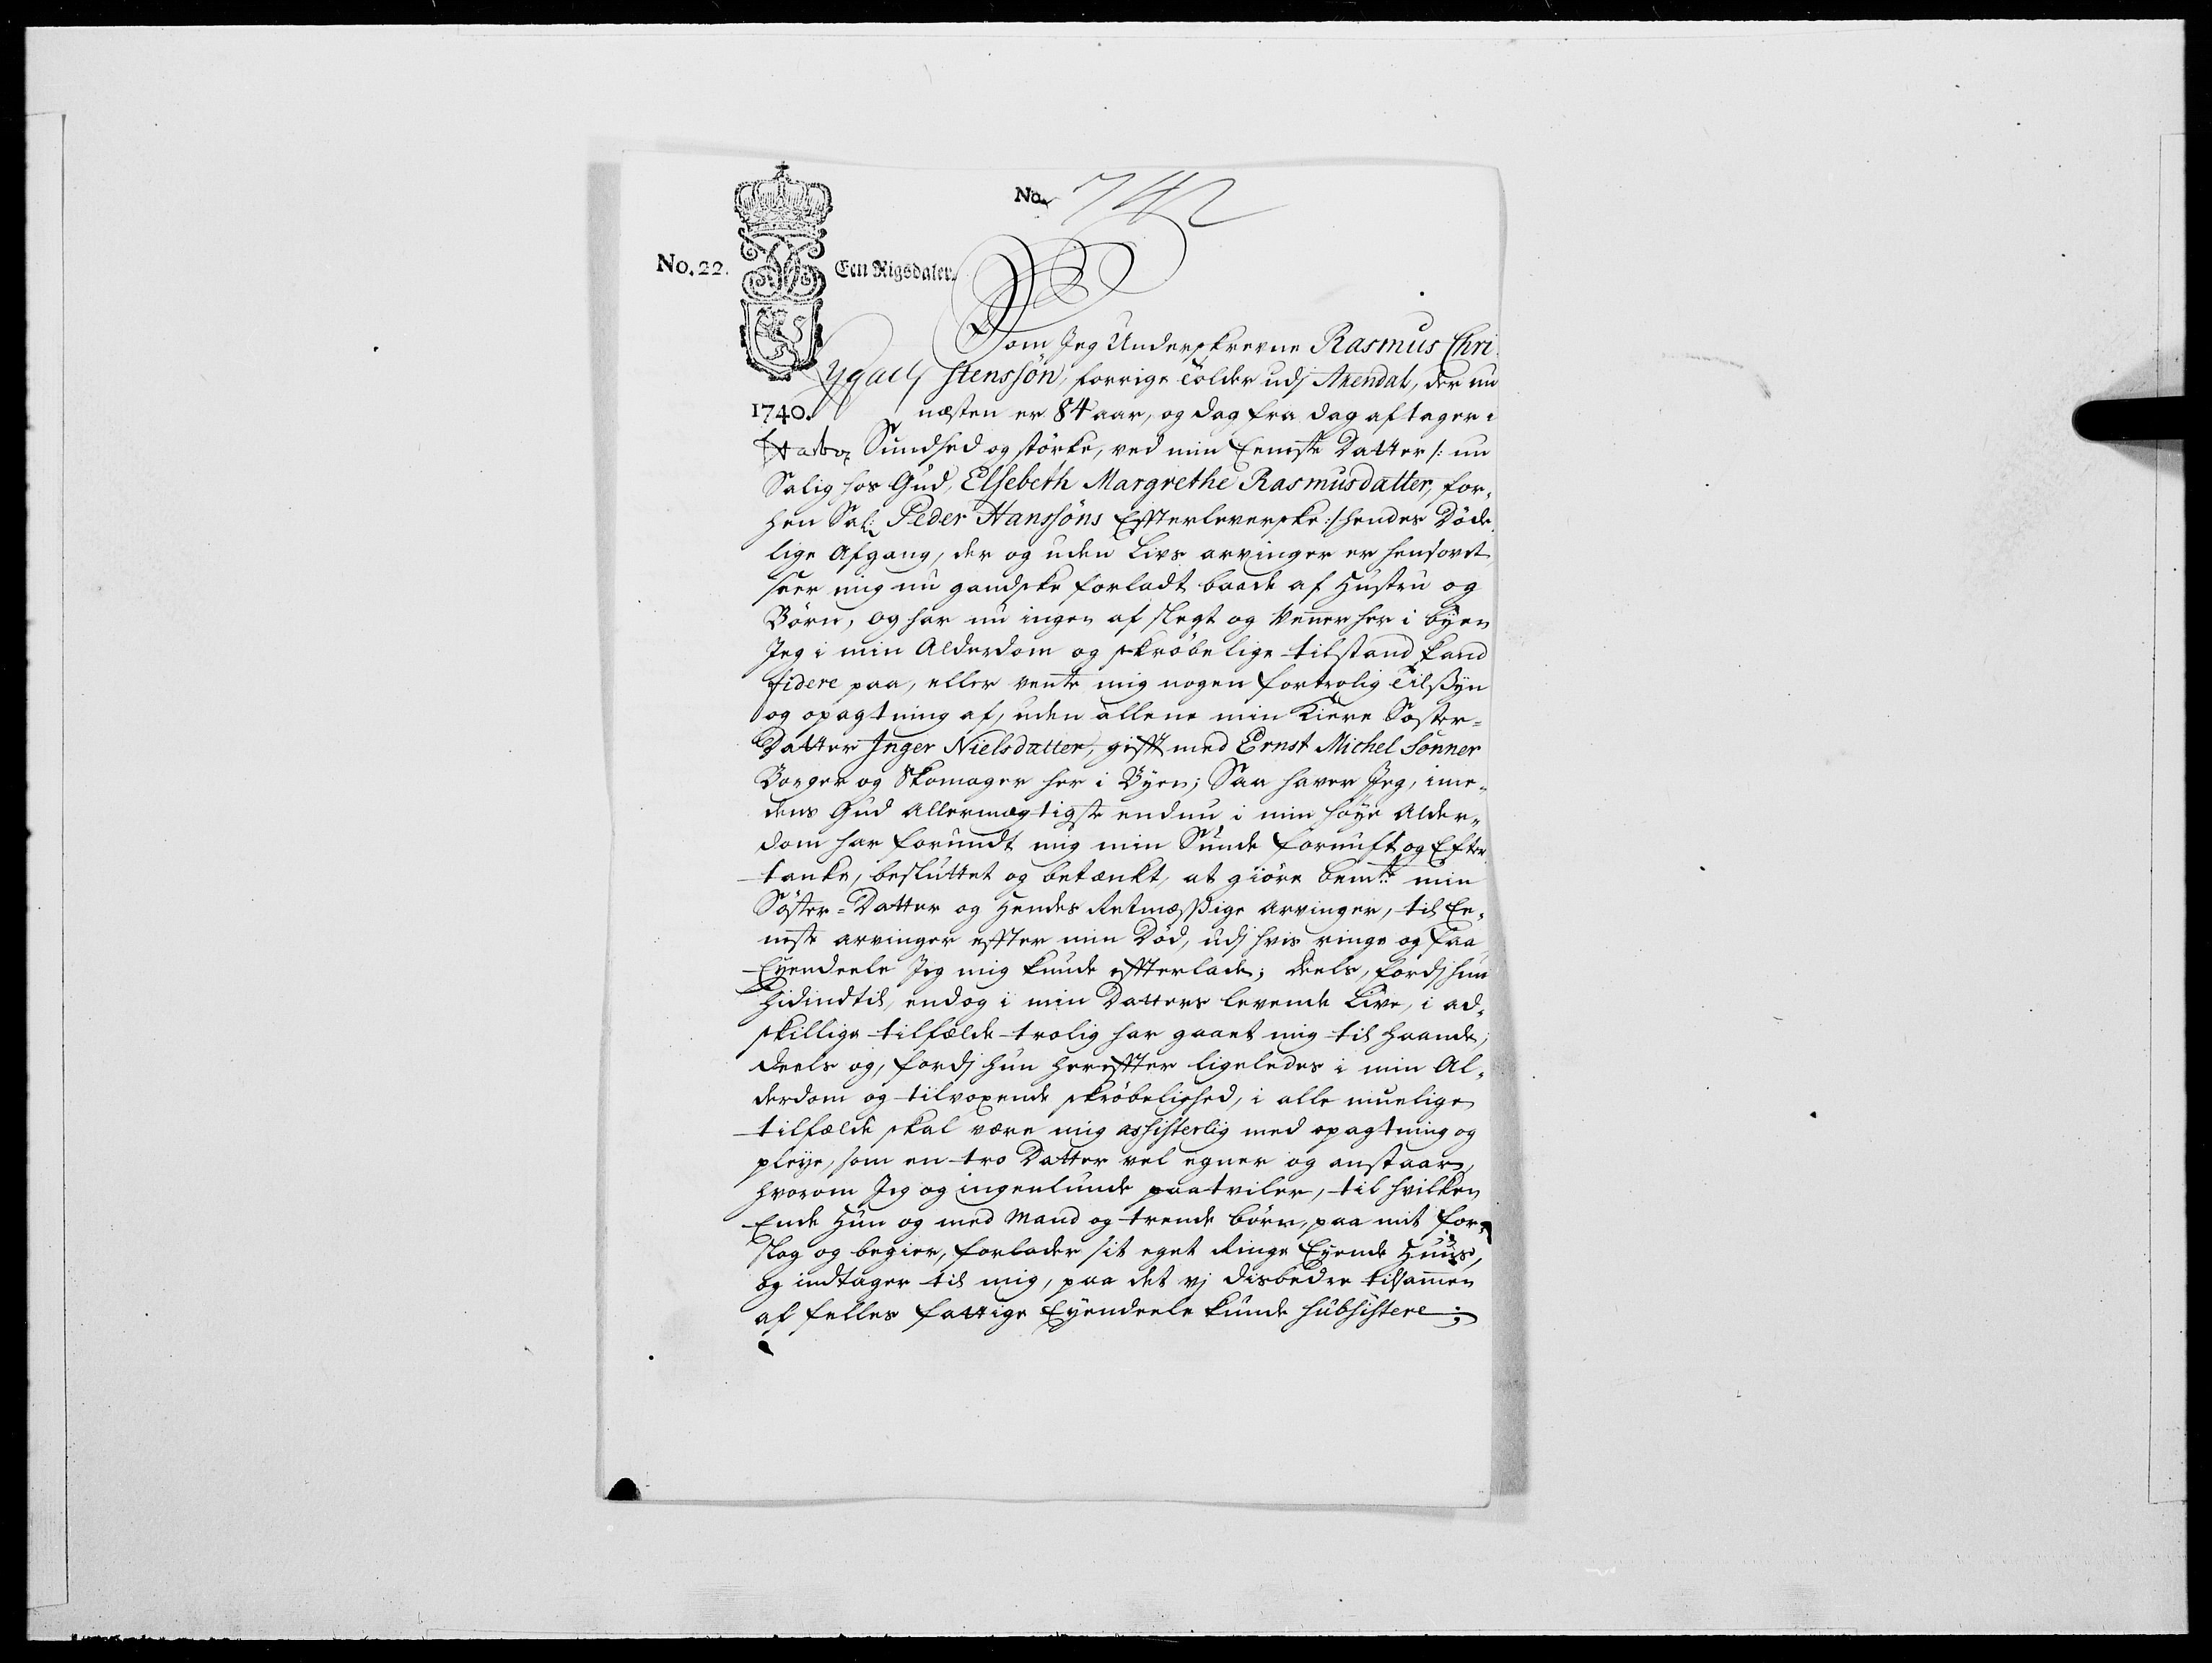 No. 742
No. 22.
Een Rigsdaler.
Som Jeg Underskrevne Rasmus Chri-
stensøn, forrige Tolder udj Arendal, der nu
1740. næsten er 84 aar, og dag fra dag aftager i
Sundhed og störke, ved min Eeneste Datter /: nu
Salig hos Gud, Elsebeth Margrethe Rasmusdatter, for-
hen Sal: Peder Hanssöns Effterleverske :/ hendes Döde-
lige Afgang, der og uden Livs arvinger er hensovet,
seer mig nu gandske forladt baade af Hustru og
Börn, og har nu ingen af slegt og Venner her i byen
Jeg i min Alderdom og skröbelige tilstand kand
fidere paa, eller vente mig nogen fortrolig Tilssyn
og opagtning af, uden allene min Kiere Söster-
Datter Inger Nielsdatter, gifft med Ernst Michel Sonner
Borger og Skomager her i Byen; Saa haver Jeg, ime-
dens Gud Allermægtigste endnu i min höye Alder-
dom har forundt mig min Sunde fornuft og Efter-
tanke, besluttet og betænkt, at giöre bemte min
Söster-Datter og Hendes Retmæssige Arvinger, til Ee-
neste arvinger effter min Död, udj hvis ringe og faa
Eyendeele Jeg mig kunde effterlade; deels, fordj hun
hidindtil, endog i min Datters levende Live, i ad-
skillige tilfælde trolig har gaaet mig til haande;
deels og, fordj hun hereffter ligeledes i min Al-
derdom og tilvoxende skröbelighed, i alle muelige
tilfælde skal være mig assisterlig med opagtning og
pleye, som en tro Datter vel egner og anstaar,
hvorom Jeg og ingenlunde paatviler, til hvilken
Ende Hun og med Mand og trende börn, paa mit for-
slag og begier, forlader sit eget Ringe Eyende Huus,
og indtager til mig, paa det vj disbedre tilsammen
af felles fattige Eyendeele kunde subsistere;